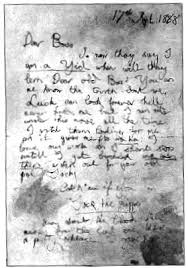 17th Sept 1888
Dear Boss
So now they say I
am a Yid when will they
lern Dear old Boss? You an
me know the truth dont we.
Lusk can look forever hell
never find me but I am rite
under his nose all the time
I watch them looking for me
an it gives me fits ha ha I
love my work an I shant stop
untill I get buckled and even
then watch out for your old
pal Jacky
Catch me if
Jack the Ripper
about the blood
the
a pretty